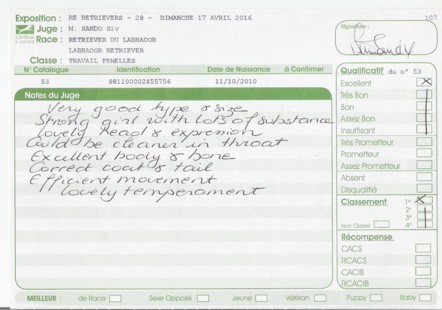 Exposition : RE RETRIEVERS - 28 - DIMANCHE 17 AVRIL 2016
107
Juge : M. SANDO Siv
Signature :
Race : RETRIEVER DU LABRADOR
LABRADOR RETRIEVER
Classe : TRAVAIL FEMELLES
N° Catalogue Identification Date de Naissance à Confirmer
53 981100002455756 11/10/2010
Qualificatif du n° 53
Notes du Juge
Very good type & size
Strong girl with lots of substance
Lovely head & expression
Could be cleaner in throat
Excellent body & bone
Correct coat & tail
Efficient movement
Lovely temperament
Excellent
Très Bon
Bon
Assez Bon
Insuffisant
Très Prometteur
Prometteur
Assez Prometteur
Absent
Disqualifié
Classement 1er
2e
3e
Non Classé 4e
Récompense
CACS
RCACS
CACIB
RCACIB
MEILLEUR : de Race Sexe Opposé Jeune Vétéran Puppy Baby